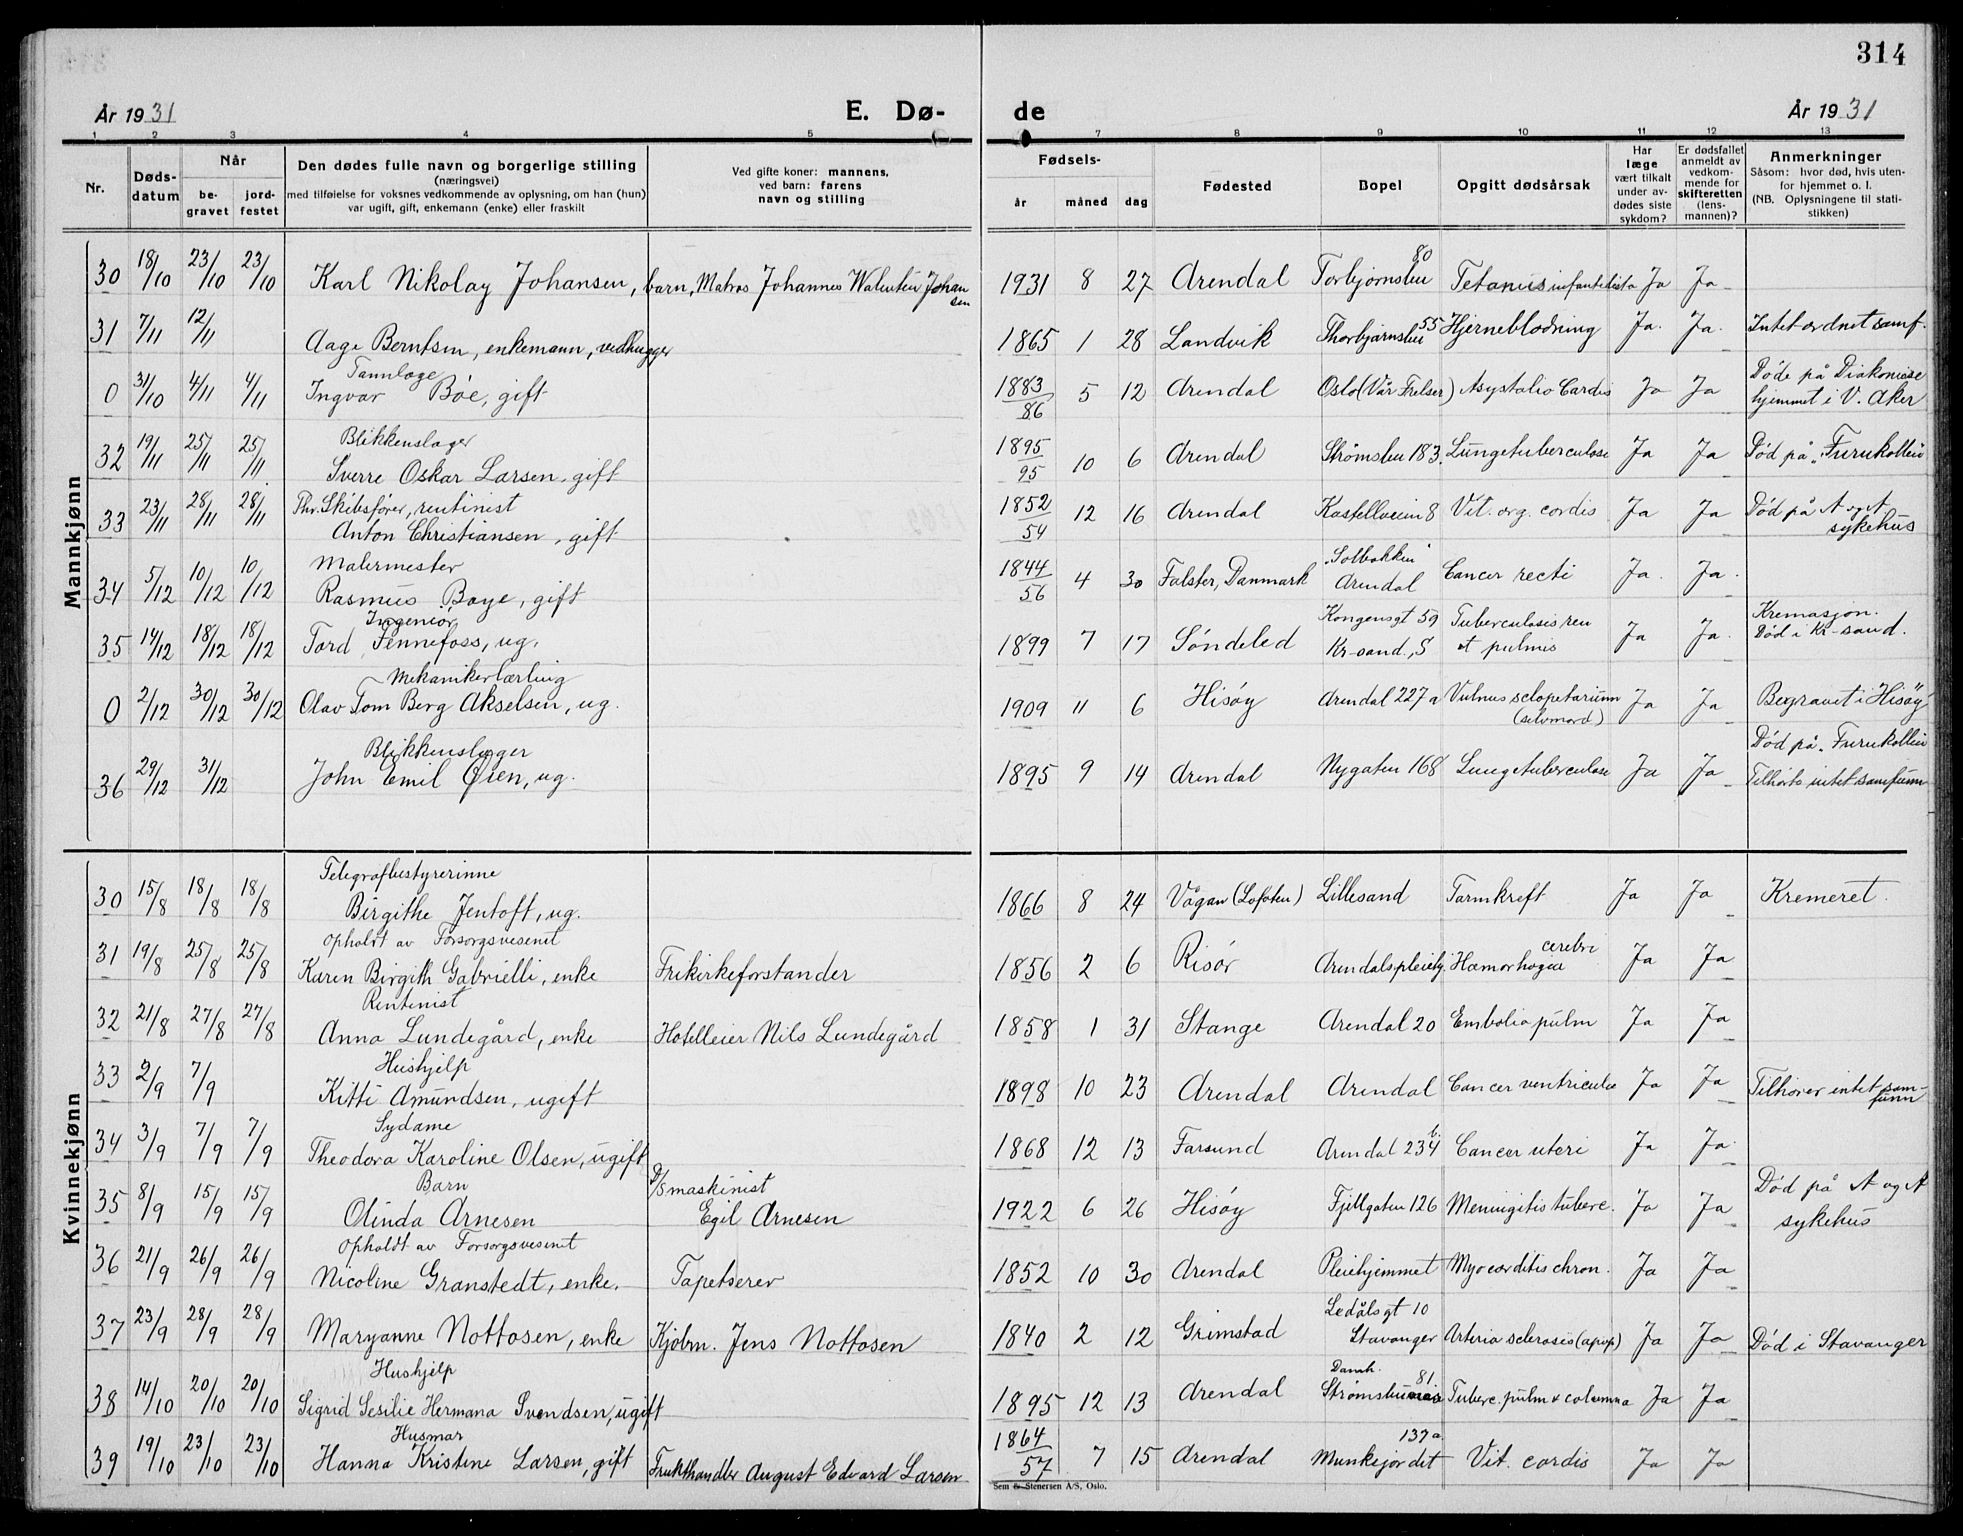 314
År 1931 E. Dø- de År 1931
1 2 3 4 5 7 8 9 10 11 12 13
Nr. Døds-datum Når be-gravet jord-festet Den dødes fulle navn og borgerlige stilling (næringsvei) med tilføielse for voksnes vedkommende av oplysning, om han (hun) var ugift, gift, enkemann (enke) eller fraskilt Ved gifte koner: mannens, ved barn: farens navn og stilling Fødsels- år måned dag Fødested Bopel Opgitt dødsårsak Har læge vært tilkalt under av-dødes siste sykdom? Er dødsfallet anmeldt av vedkom-mende for skifteretten (lens-mannen)? Anmerkninger Såsom: hvor død, hvis uten-for hjemmet o. l. (NB. Oplysningene til stati-stikken)
Mannkjønn
30 18/10 23/10 23/10 Karl Nikolay Johansen, barn, Matros Johannes Walentin Johansen 1931 8 27 Arendal Torbjørnsbu 80 Tetanus Ja Ja
31 7/11 12/11 Aage Berntsen, enkemann, vedhugger 1865 1 28 Landvik Thorbjørnsbu 55 Hjerneblødning Ja. Ja. Intet ordnet samf.
0 31/10 4/11 4/11 Tannlæge Ingvar Bøe, gift 1883/86 5 12 Arendal Oslo (Vår Frelser) Asystolio Cordis Ja Ja Døde på Diakonisse hjemmet i V. Aker
32 19/11 25/11 25/11 Blikkenslager Sverre Oskar Larsen, gift 1895/95 10 6 Arendal Strømsbu 183. Lungetuberculose Ja Ja Død på "Furukollen
33 23/11 28/11 28/11 Fhv. Skibsfører, rentinist Anton Christiansen, gift 1852/54 12 16 Arendal Kastellveien 8 Vit. org. cordis Ja Ja Død på A og A sykehus
34 5/12 10/12 10/12 Malermester Rasmus Boye, gift 1844/56 4 30 Falster, Danmark "Solbakken" Arendal Cancer recti Ja. Ja.
35 14/12 18/12 18/12 Ingeniør Tord Fennefoss, ug. 1899 7 17 Søndeled Kongensgt 59 Kr-sand., S Tuberculosis ren et pulmis Ja Ja. Kremasjon. Død i Kr-sand.
0 2/12 30/12 30/12 Mekanikerlærling Olav Tom Berg Akselsen, ug. 1909 11 6 Hisøy Arendal 227 a Vulnus sclopetarium (selvmord) Ja Ja Begravet i Hisøy
36 29/12 31/12 Blikkenslager John Emil Øien, ug. 1895 9 14 Arendal Nygaten 168 Lungetuberculose Ja Ja Død på "Furukollen Tilhørte intet samfunn
Kvinnekjønn
30 15/8 18/8 18/8 Telegrafbestyrerinne Birgithe Jentoft, ug. 1866 8 24 Vågan (Lofoten) Lillesand Tarmkreft Ja Ja Kremeret.
31 19/8 25/8 25/8 Opholdt av Forsorgsvesenet Karen Birgith Gabrielli, enke Frikirkeforstander 1856 2 6 Risør Arendalspleiehj. Hæmorhagia cerebri Ja Ja
32 21/8 27/8 27/8 Rentinist Anna Lundegård, enke Hotelleier Nils Lundegård 1858 1 31 Stange Arendal 20 Embolia pulm Ja Ja
33 2/9 7/9 Hushjelp Kitti Amundsen, ugift 1898 10 23 Arendal Arendal Cancer ventriculi Ja Ja Tilhører intet samfunn
34 3/9 7/9 7/9 Sydame Theodora Karoline Olsen, ugift 1868 12 13 Farsund Arendal 234 b. Cancer uteri Ja Ja
35 8/9 15/9 15/9 Barn Olinda Arnesen D/S maskinist Egil Arnesen 1922 6 26 Hisøy Fjellgaten 126 Meningitis tuberc. Ja Ja Død på A og A sykehus
36 21/9 26/9 26/9 Opholdt av Forsorgsvesenet Nicoline Granstedt, enke. Tapetserer 1852 10 30 Arendal Pleiehjemmet Myocarditis chron. Ja Ja
37 23/9 28/9 28/9 Maryanne Nottosen, enke Kjøbm. Jens Nottosen 1840 2 12 Grimstad Ledålsgt 10 Stavanger Arteria sclerosis (apop) Ja Ja Død i Stavanger
38 14/10 20/10 20/10 Hushjelp Sigrid Sesilie Hermana Svendsen, ugift 1895 12 13 Arendal Strømsbu 81 Tuberc. pulm & columna Ja Ja
39 19/10 23/10 23/10 Husmor Hanna Kristine Larsen, gift Frukthandler August Edvard Larsen 1864/57 7 15 Arendal Munkejordet 137a Vit. cordis Ja Ja
Sem & Stenersen A/S, Oslo.